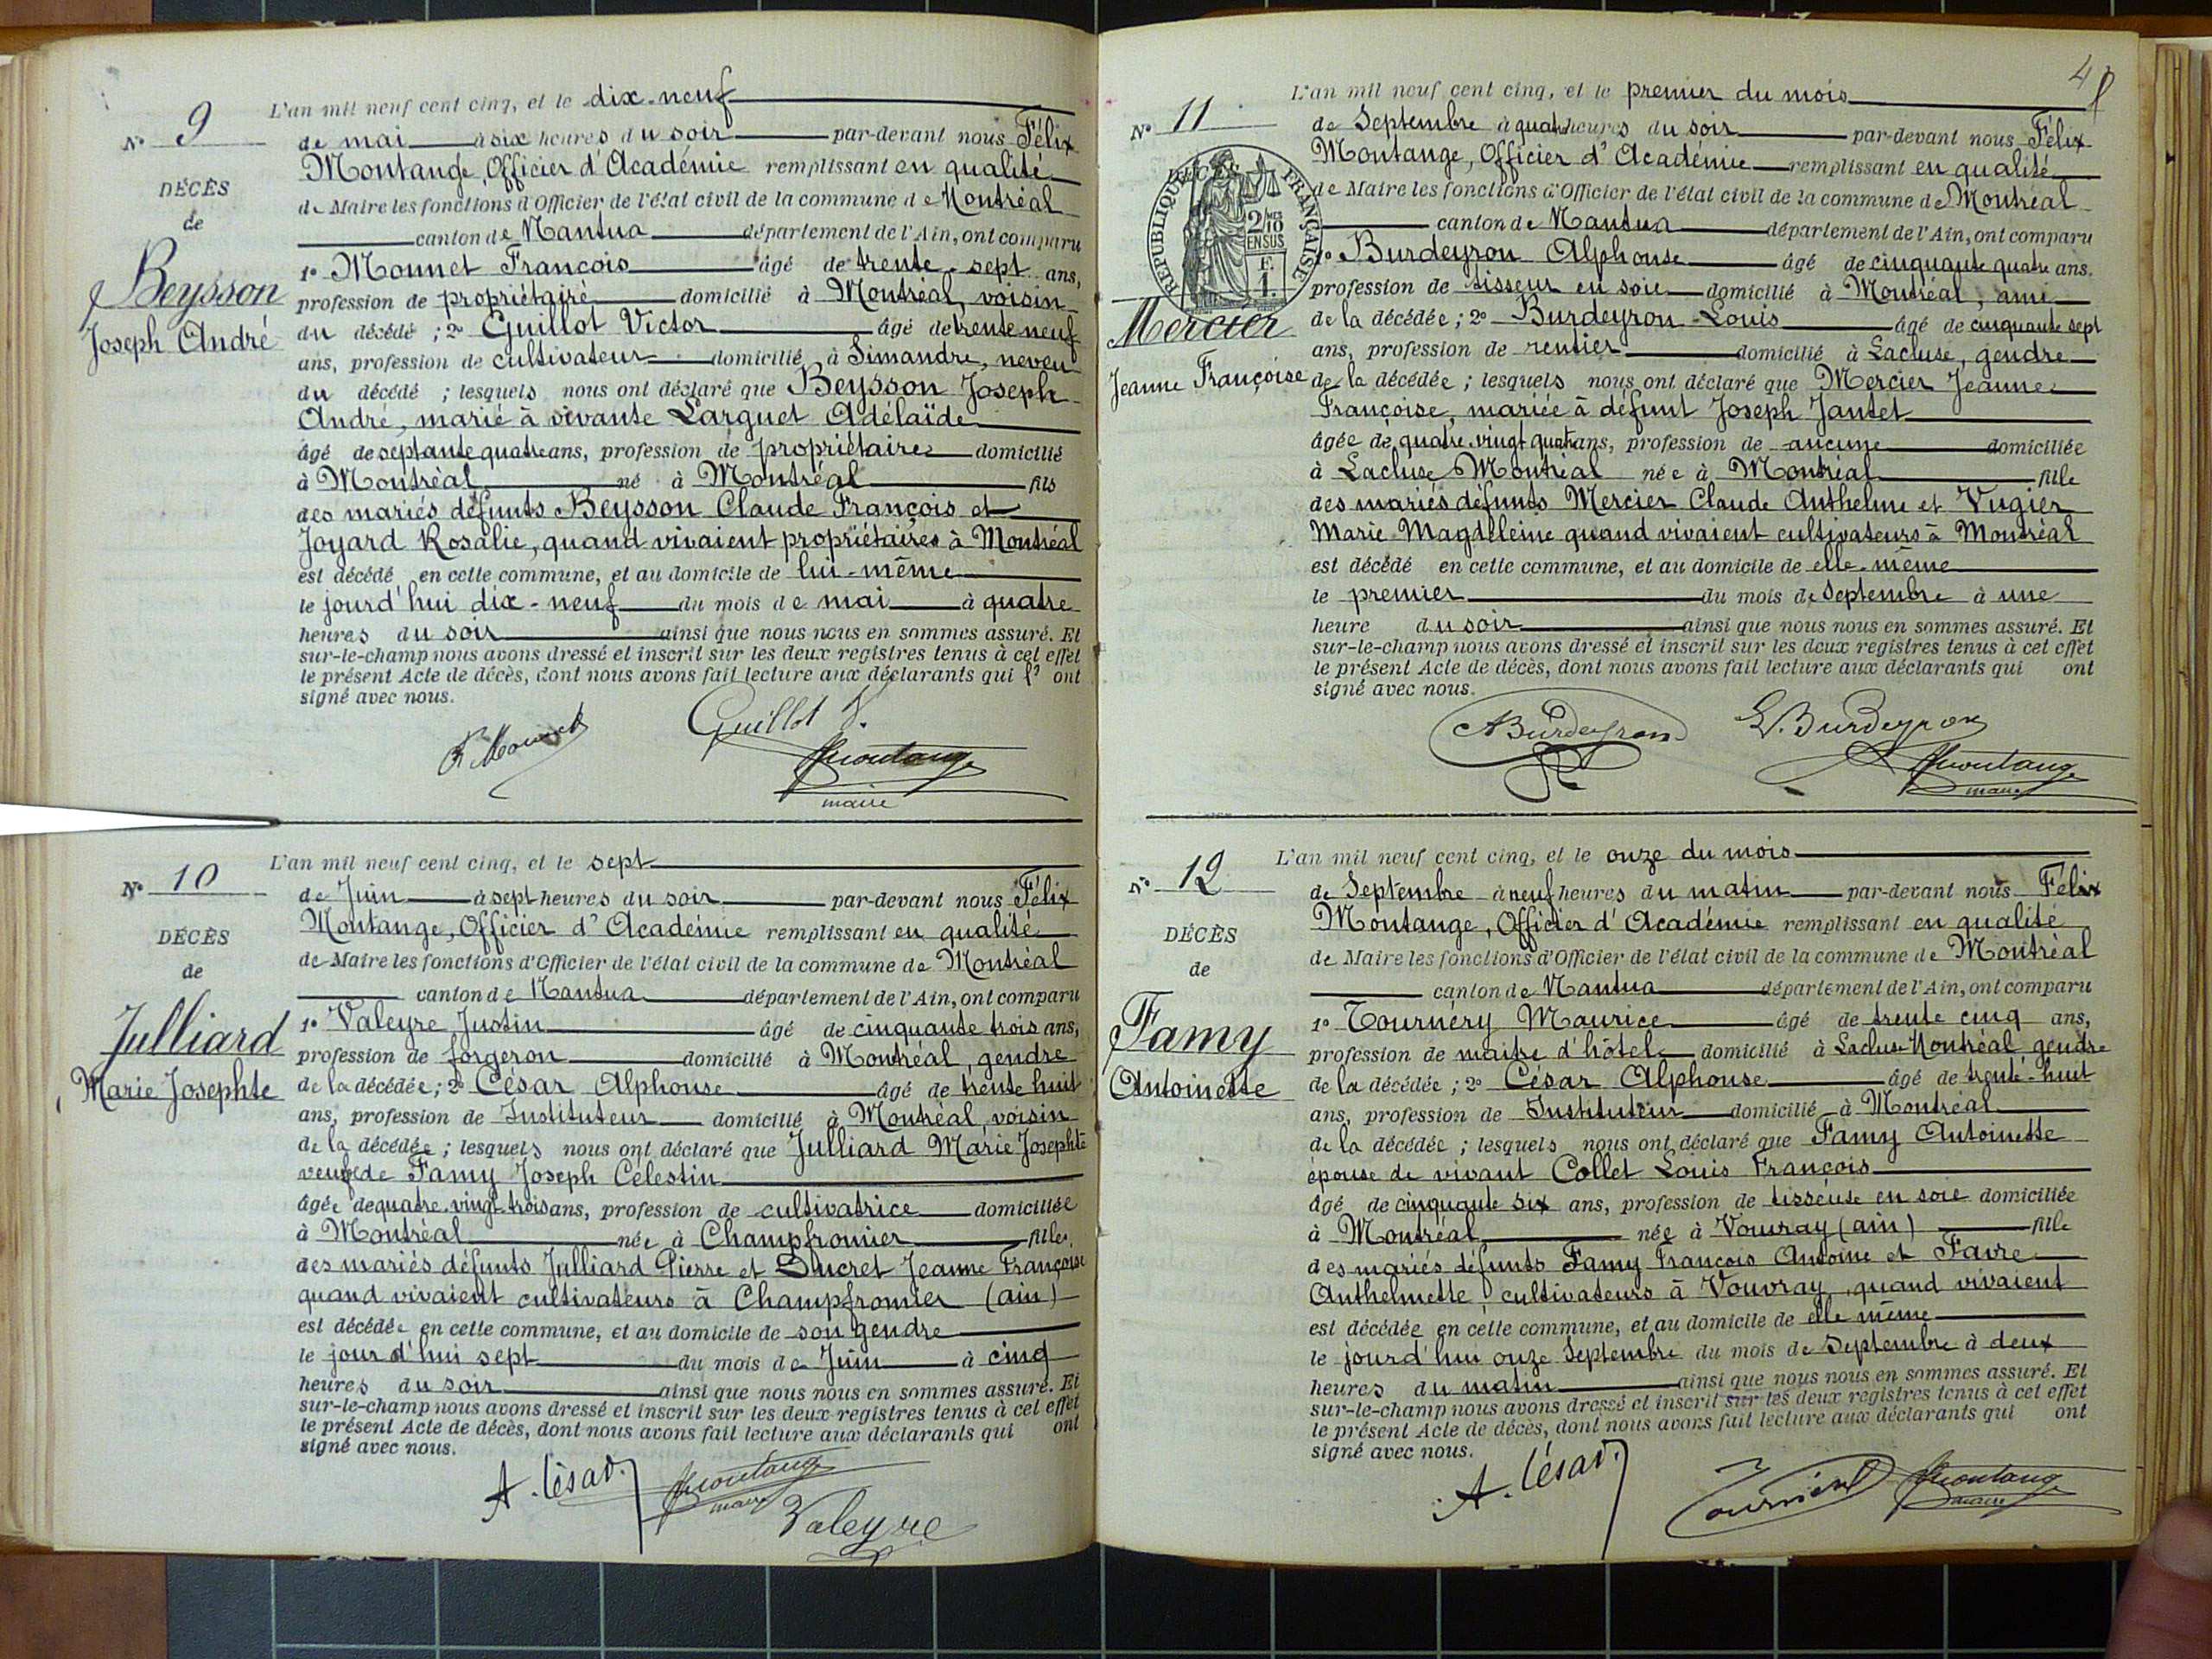 L'an mil neuf cent cinq, et le dix-neuf
N° 9
de mai à six heures du soir par-devant nous Félix
Montange, Officier d'Académie remplissant en qualité
DÉCÈS
de Maire les fonctions d'Officier de l'état civil de la commune de Montréal
de
canton de Nantua département de l'Ain, ont comparu
1° Monnet François âgé de trente-sept ans,
Beysson
profession de propriétaire domicilié à Montréal, voisin
du décédé ; 2° Guillot Victor âgé de trente neuf
Joseph André
ans, profession de cultivateur domicilié à Simandre, neveu
du décédé ; lesquels nous ont déclaré que Beysson Joseph
André, marié à vivante Larguet Adélaïde
âgé de septante quatre ans, profession de propriétaire domicilié
à Montréal né à Montréal fils
des mariés défunts Beysson Claude François et
Joyard Rosalie, quand vivaient propriétaires à Montréal
est décédé en cette commune, et au domicile de lui-même
le jourd'hui dix-neuf du mois de mai à quatre
heures du soir ainsi que nous nous en sommes assuré. Et
sur-le-champ nous avons dressé et inscrit sur les deux registres tenus à cet effet
le présent Acte de décès, dont nous avons fait lecture aux déclarants qui ont
signé avec nous.
F. Monnet Guillot V.
Fmontange
maire
L'an mil neuf cent cinq, et le sept
N° 10
de Juin à sept heures du soir par-devant nous Félix
Montange, Officier d'Académie remplissant en qualité
DÉCÈS
de Maire les fonctions d'Officier de l'état civil de la commune de Montréal
de
canton de Nantua département de l'Ain, ont comparu
1° Valeyre Justin âgé de cinquante trois ans,
Julliard
profession de forgeron domicilié à Montréal, gendre
de la décédée ; 2° César Alphonse âgé de trente huit
Marie Josephte
ans, profession de Instituteur domicilié à Montréal, voisin
de la décédée ; lesquels nous ont déclaré que Julliard Marie Josephte
veuve de Famy Joseph Célestin
âgée de quatre-vingt-trois ans, profession de cultivatrice domiciliée
à Montréal née à Champfromier fille
des mariés défunts Julliard Pierre et Ducret Jeanne Françoise
quand vivaient cultivateurs à Champfromier (ain)
est décédée en cette commune, et au domicile de son gendre
le jourd'hui sept du mois de Juin à cinq
heures du soir ainsi que nous nous en sommes assuré. Et
sur-le-champ nous avons dressé et inscrit sur les deux registres tenus à cet effet
le présent Acte de décès, dont nous avons fait lecture aux déclarants qui ont
signé avec nous.
A. César. Fmontange
maire
Valeyre
4
L'an mil neuf cent cinq, et le premier du mois
N° 11
de Septembre à quatre heures du soir par-devant nous Félix
Montange, Officier d'Académie remplissant en qualité
DÉCÈS
RÉPUBLIQUE FRANÇAISE
2/10 MES
EN SUS
F.
1.
de Maire les fonctions d'Officier de l'état civil de la commune de Montréal
canton de Nantua département de l'Ain, ont comparu
1° Burdeyron Alphonse âgé de cinquante quatre ans.
profession de tisseur en soie domicilié à Montréal, ami
Mercier
de la décédée ; 2° Burdeyron Louis âgé de cinquante sept
ans, profession de rentier domicilié à Lacluse, gendre
Jeanne Françoise
de la décédée ; lesquels nous ont déclaré que Mercier Jeanne
Françoise, mariée à défunt Joseph Jantet
âgée de quatre-vingt quatre ans, profession de aucune domiciliée
à Lacluse Montréal née à Montréal fille
des mariés défunts Mercier Claude Anthelme et Vugier
Marie Magdeleine quand vivaient cultivateurs à Montréal
est décédé en cette commune, et au domicile de elle-même
le premier du mois de Septembre à une
heure du soir ainsi que nous nous en sommes assuré. Et
sur-le-champ nous avons dressé et inscrit sur les deux registres tenus à cet effet
le présent Acte de décès, dont nous avons fait lecture aux déclarants qui ont
signé avec nous.
ABurdeyron L. Burdeyron
Fmontange
maire
L'an mil neuf cent cinq, et le onze du mois
N° 12
de Septembre à neuf heures du matin par-devant nous Félix
Montange, Officier d'Académie remplissant en qualité
DÉCÈS
de Maire les fonctions d'Officier de l'état civil de la commune de Montréal
de
canton de Nantua département de l'Ain, ont comparu
1° Tournéry Maurice âgé de trente cinq ans,
Famy
profession de maître d'hôtel domicilié à Lacluse Montréal gendre
Antoinette
de la décédée ; 2° César Alphonse âgé de trente-huit
ans, profession de Instituteur domicilié à Montréal
de la décédée ; lesquels nous ont déclaré que Famy Antoinette
épouse de vivant Collet Louis François
âgé de cinquante six ans, profession de tisseuse en soie domiciliée
à Montréal née à Vouvray (ain) fille
des mariés défunts Famy François Antoine et Favre
Anthelmette, cultivateurs à Vouvray, quand vivaient
est décédée en cette commune, et au domicile de elle même
le jourd'hui onze Septembre du mois de Septembre à deux
heures du matin ainsi que nous nous en sommes assuré. Et
sur-le-champ nous avons dressé et inscrit sur les deux registres tenus à cet effet
le présent Acte de décès, dont nous avons fait lecture aux déclarants qui ont
signé avec nous.
A. César. Fmontange
maire